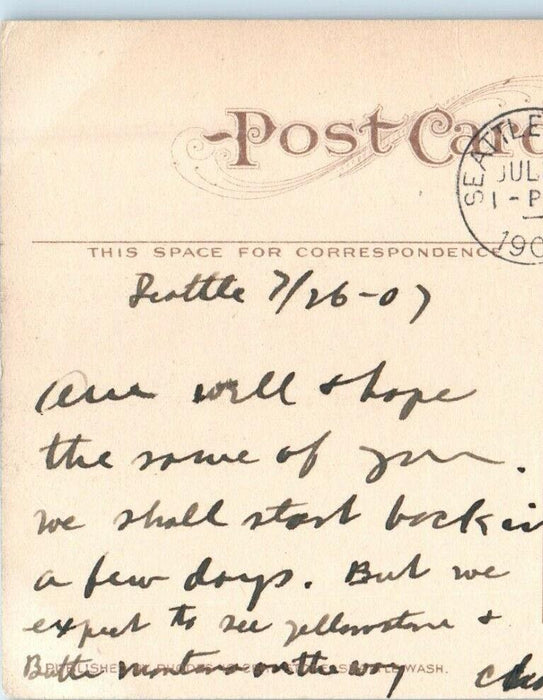 Post Card
SEATTLE
JUL
1 - P
190
THIS SPACE FOR CORRESPONDENCE
Seattle 7/26-07
are well & hope
the same of you.
we shall start back in
a few days. But we
expect to see yellowstone &
Butte montana on the way
PUBLISHED BY SEATTLE, WASH.